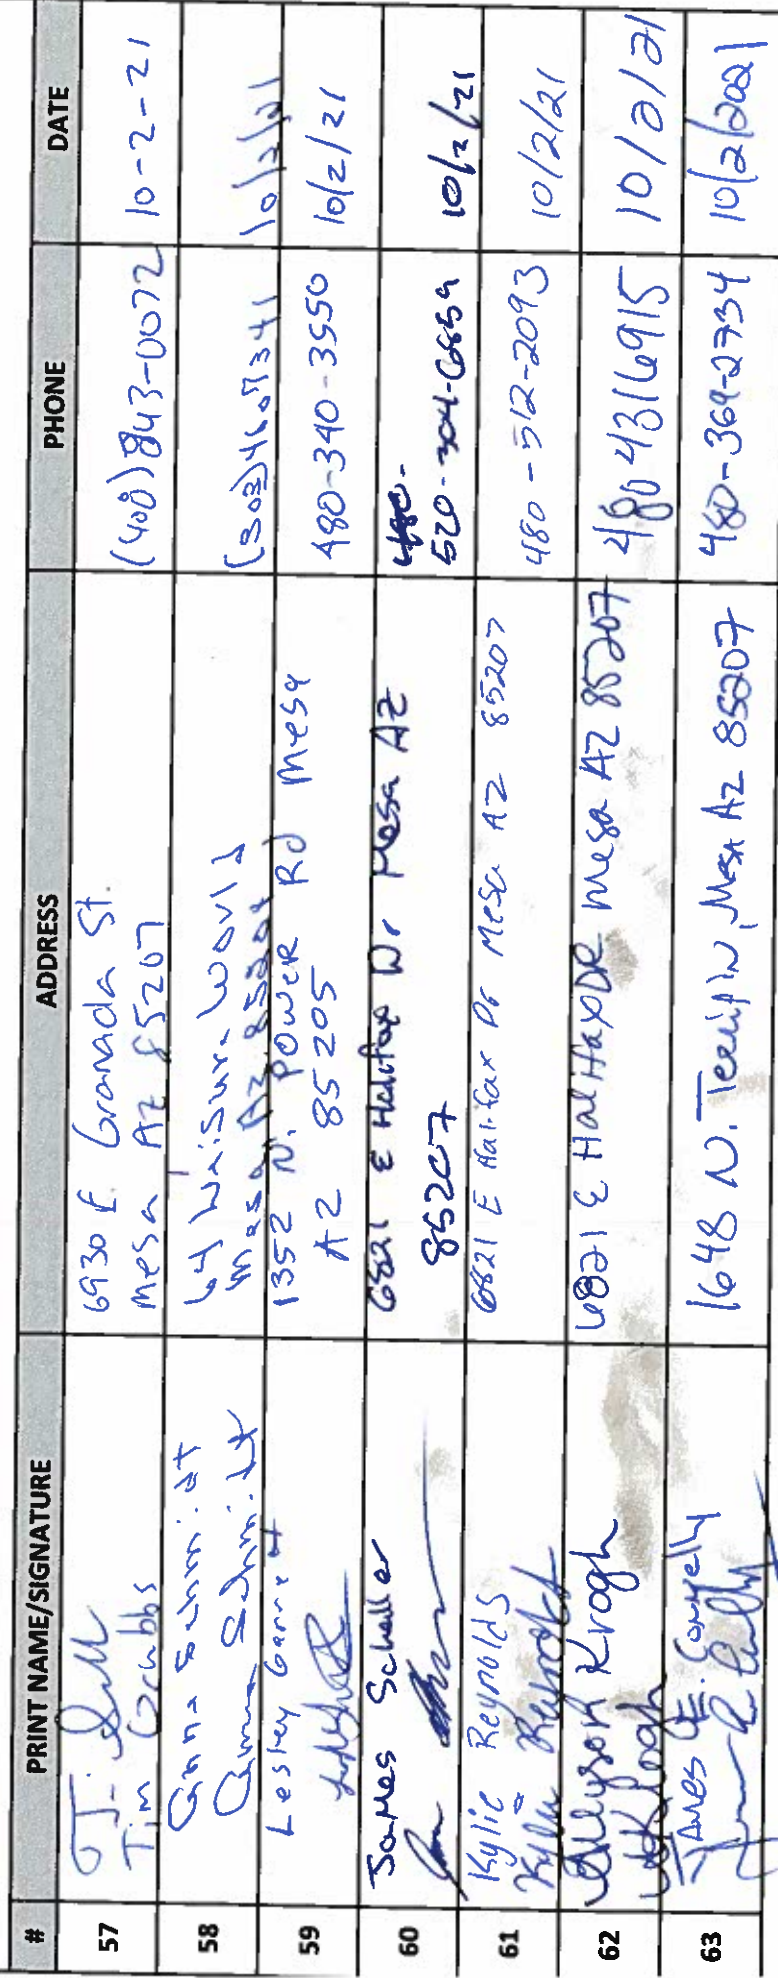 # PRINT NAME/SIGNATURE ADDRESS PHONE DATE
57 Tim Grubbs 6930 E. Granada St. Mesa Az 85207 (408) 843-0072 10-2-21
58 Anna Schmidt Anna Schmidt 64 Leisure World Mesa Az (303) 4607341 10/2/21
59 Lesley Garret 1352 N. POWER RD Mesa AZ 85205 480-340-3550 10/2/21
60 James Schaller 6821 E Halifax Dr Mesa AZ 85207 480- 520-304-6859 10/2/21
61 Kylie Reynolds Kylie Reynolds 6821 E Halifax Dr Mesa AZ 85207 480-512-2093 10/2/21
62 Allyson Krogh 6821 E Halifax DR Mesa AZ 85207 480 4316915 10/2/21
63 James E. 1648 N. Mesa Az 85207 480-369-2734 10/2/2021